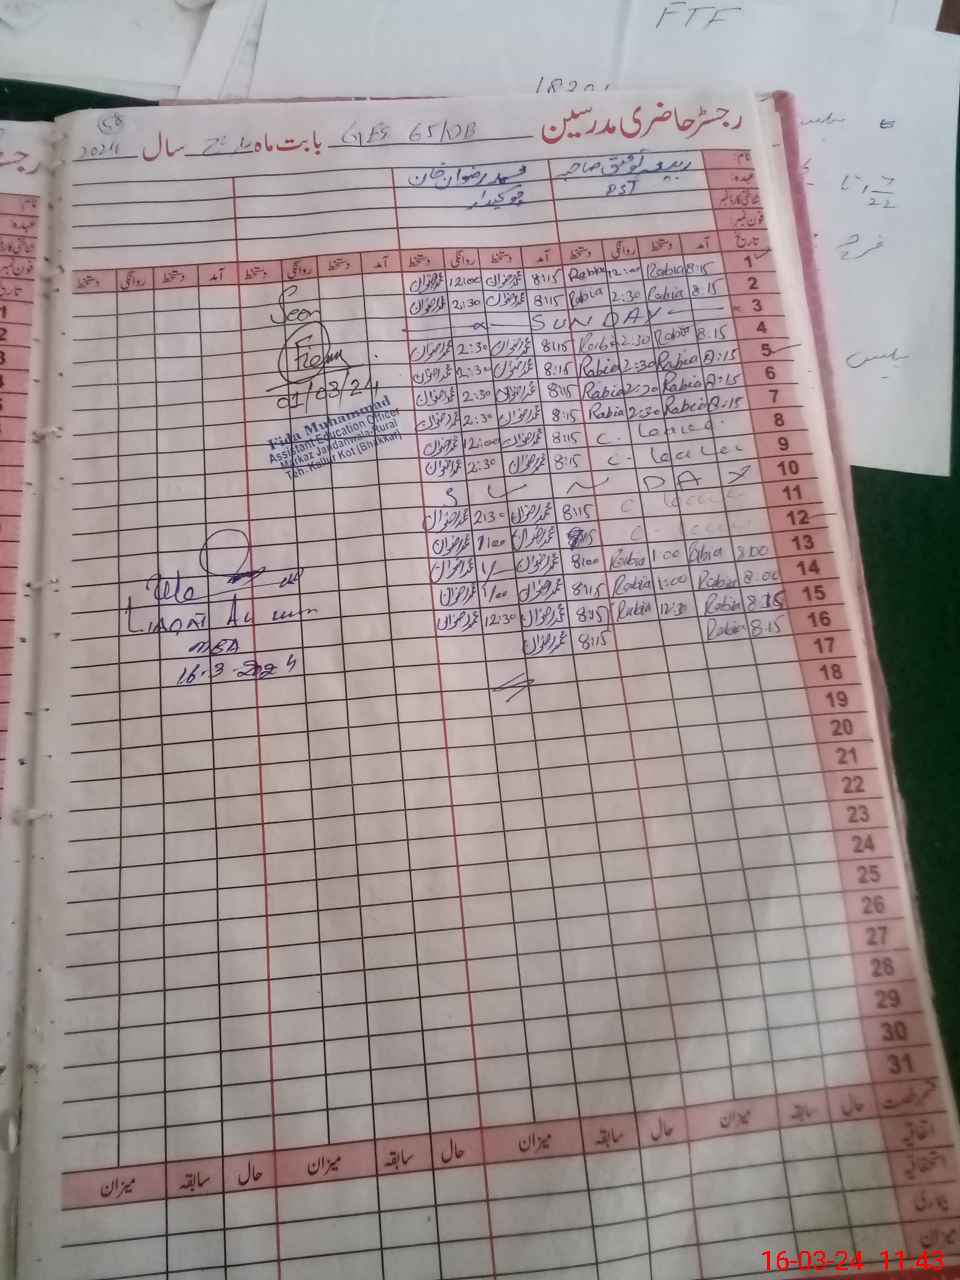 FTF
1820
58
رجسٹر حاضری مدرسین GES 65/DB بابت ماہ مارچ سال 2024
نام ربیعہ توفیق صاحبہ محمد رضوان خان
عہدہ PST چوکیدار
شناختی کارڈ نمبر
فون نمبر
تاریخ آمد دستخط روانگی دستخط آمد دستخط روانگی دستخط آمد دستخط روانگی دستخط آمد دستخط روانگی دستخط
1 8:15 Rabia 12:00 Rabia 8:15 محمد رضوان 12:00 محمد رضوان
2 8:15 Rabia 2:30 Rabia 8:15 محمد رضوان 2:30 محمد رضوان
3 SUNDAY
4 8:15 Rabia 2:30 Rabia 8:15 محمد رضوان 2:30 محمد رضوان
5 8:15 Rabia 2:30 Rabia 8:15 محمد رضوان 2:30 محمد رضوان
6 8:15 Rabia 2:30 Rabia 8:15 محمد رضوان 2:30 محمد رضوان
7 8:15 Rabia 2:30 Rabia 8:15 محمد رضوان 2:30 محمد رضوان
8 C. Leave 8:15 محمد رضوان 12:00 محمد رضوان
9 C. Leave 8:15 محمد رضوان 2:30 محمد رضوان
10 SUNDAY
11 C Leave 8:15 محمد رضوان 2:30 محمد رضوان
12 C. Leave 8:15 محمد رضوان 1:00 محمد رضوان
13 8:00 Rabia 1:00 Rabia 8:00 محمد رضوان محمد رضوان
14 8:00 Rabia 1:00 Rabia 8:15 محمد رضوان 1:00 محمد رضوان
15 8:15 Rabia 12:30 Rabia 8:15 محمد رضوان 12:30 محمد رضوان
16 8:15 Rabia 8:15 محمد رضوان
17
18
19
20
21
22
23
24
25
26
27
28
29
30
31
Seen
01/03/24
Fida Muhammad
Assistant Education Officer
Markaz Jandanwala-Rural
Teh. Kallur Kot (Bhakkar)
LIAQAT Ali
MEA
16-3-2024
قسم رخصت حال سابقہ میزان حال سابقہ میزان حال سابقہ میزان حال سابقہ میزان
اتفاقیہ
استحقاقیہ
بیماری
میزان
16-03-24 11:43